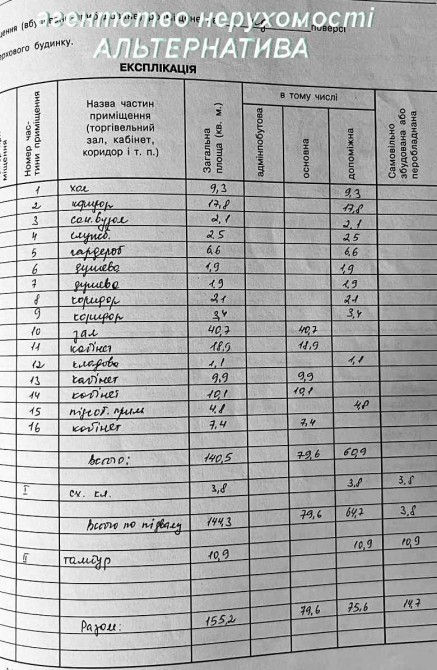 агентство нерухомості
АЛЬТЕРНАТИВА
поверсі
поверхового будинку.
ЕКСПЛІКАЦІЯ
Номер частини приміщення
Назва частин приміщення (торгівельний зал, кабінет, коридор і т. п.)
Загальна площа (кв. м.)
в тому числі
адмінпобутова
основна
допоміжна
Самовільно збудована або переобладнана
1 хол 9,3 9,3
2 коридор 17,8 17,8
3 сан.вузол 2,1 2,1
4 служб. 2,5 2,5
5 гардероб 6,6 6,6
6 душева 1,9 1,9
7 душева 1,9 1,9
8 коридор 2,1 2,1
9 коридор 3,4 3,4
10 зал 40,7 40,7
11 кабінет 18,9 18,9
12 кладова 1,1 1,1
13 кабінет 9,9 9,9
14 кабінет 10,1 10,1
15 підсоб. прим 4,8 4,8
16 кабінет 7,4 7,4
Всього: 140,5 79,6 60,9
I сх. кл. 3,8 3,8 3,8
Всього по підвалу 144,3 79,6 64,7 3,8
II тамбур 10,9 10,9 10,9
Разом: 155,2 79,6 75,6 14,7